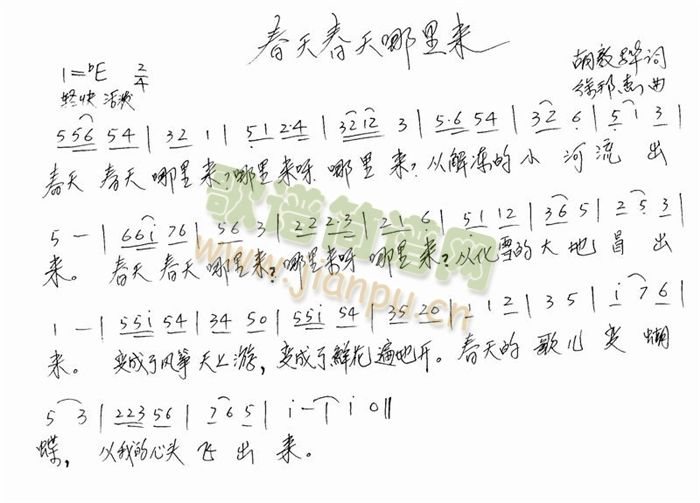 春天春天哪里来
1=ᵇE 2/4
轻快 活泼
词
徐邦杰 曲
556 54 | 32 1 | 51 2·4 | 3212 3 | 5·6 54 | 32 6 | 51 3 |
春天 春天 哪里来?哪里来呀 哪里来?从解冻的小河流出
5 — | 66i 76 | 56 3 | 22 23 | 21 6 | 51 12 | 36 5 | 25 3 |
来。 春天春天哪里来?哪里来呀哪里来?从化雪的大地冒出
1 — | 55i 54 | 34 50 | 55i 54 | 35 20 | 1 1 2 | 3 5 | i 7 6 |
来。 变成了风筝天上游,变成了鲜花遍地开。春天的歌儿变蝴
5 3 | 223 56 | 76 5 | i — | i 0 ||
蝶, 从我的心头飞出来。
歌谱简谱网
www.jianpu.cn